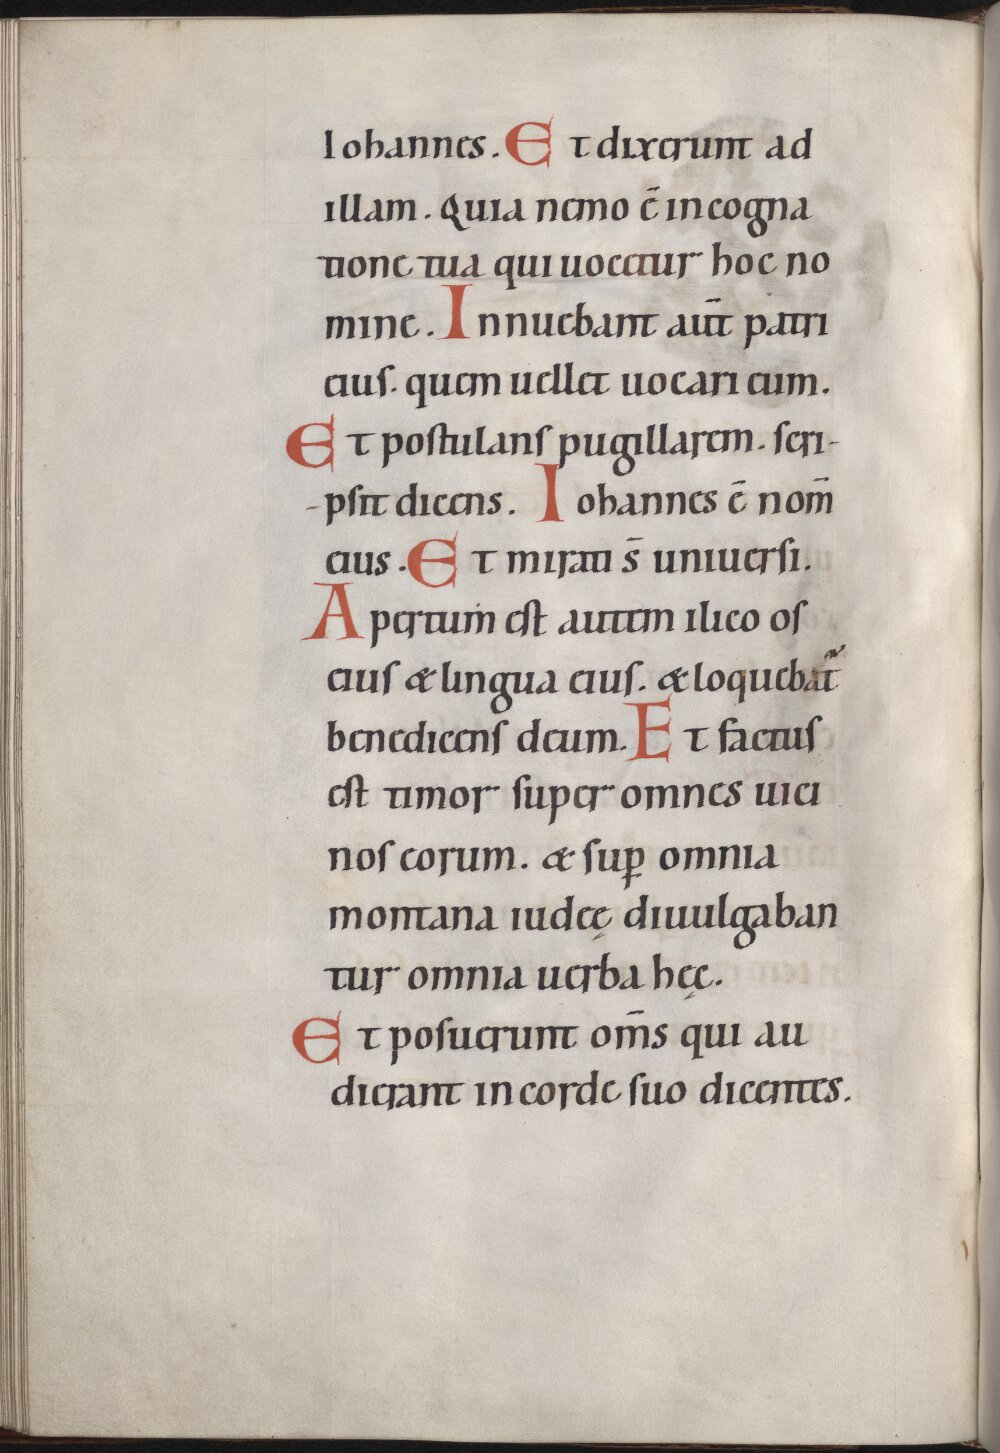 Iohannes. Et dixerunt ad
illam. Quia nemo ē in cogna
tione tua qui uocetur hoc no
mine. Innuebant aūt patri
eius. quem uellet uocari eum.
Et postulans pugillarem. scri-
-psit dicens. Iohannes ē nom̄
eius. Et mirati s̄ uniuersi.
Apertum est autem ilico os
eius & lingua eius. & loquebat̄
benedicens deum. Et factus
est timor super omnes uici
nos eorum. & suꝑ omnia
montana iudeę diuulgaban
tur omnia uerba hęc.
Et posuerunt om̄s qui au
dierant in corde suo dicentes.